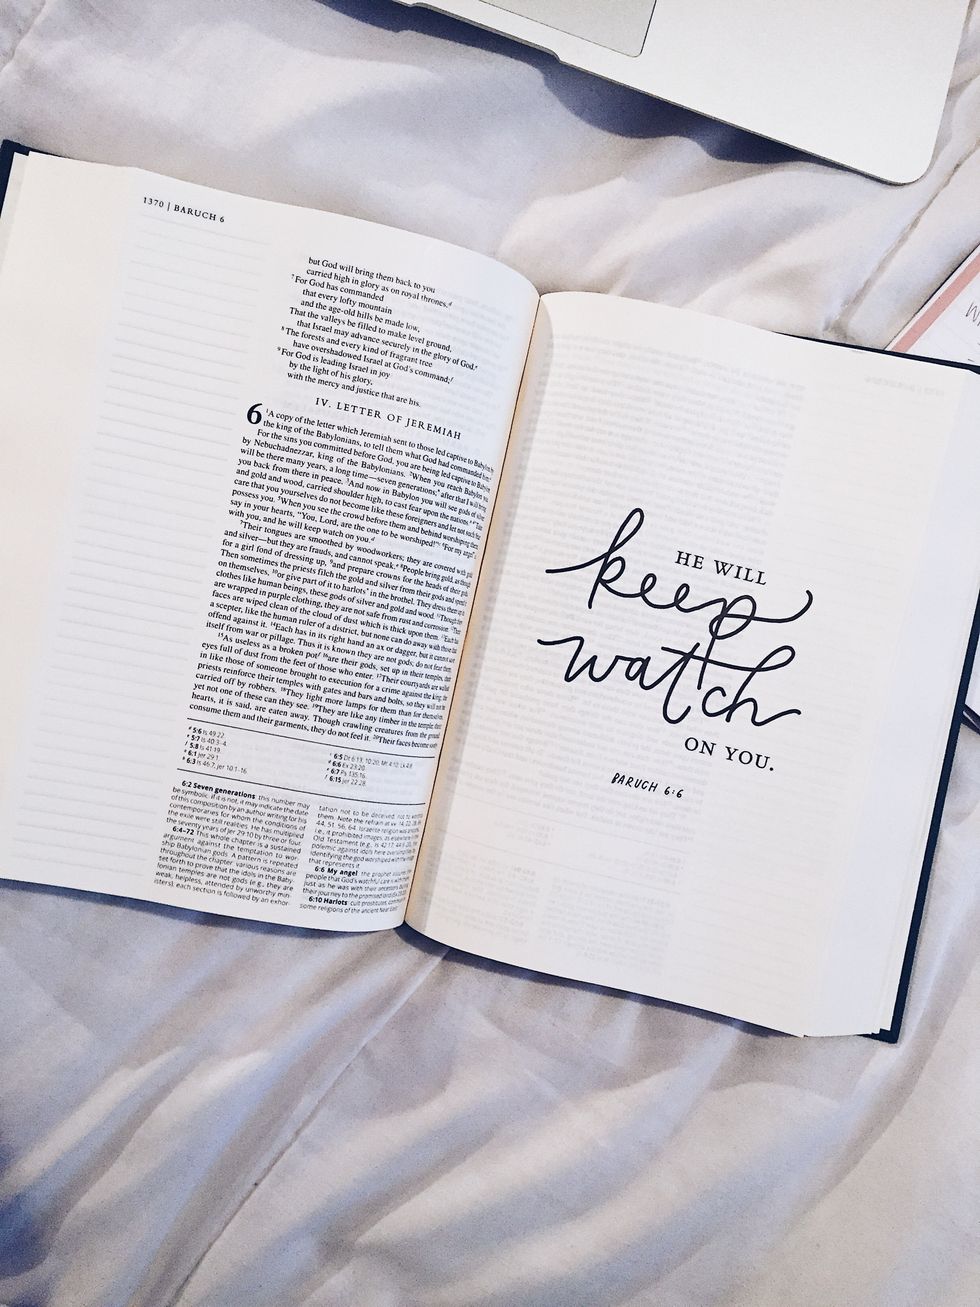 1370 | BARUCH 6
but God will bring them back to you
carried high in glory as on royal thrones.d
7 For God has commanded
that every lofty mountain
and the age-old hills be made low,
That the valleys be filled to make level ground,
that Israel may advance securely in the glory of God.e
8 The forests and every kind of fragrant tree
have overshadowed Israel at God's command;f
9 For God is leading Israel in joy
by the light of his glory,
with the mercy and justice that are his.
IV. LETTER OF JEREMIAH
6 1A copy of the letter which Jeremiah sent to those led captive to Babylon by
the king of the Babylonians, to tell them what God had commanded him:
For the sins you committed before God, you are being led captive to Babylon
by Nebuchadnezzar, king of the Babylonians. 2When you reach Babylon you
will be there many years, a long time—seven generations;* after that I will bring
you back from there in peace. 3And now in Babylon you will see gods of silver
and gold and wood, carried shoulder high, to cast fear upon the nations. 4Take
care that you yourselves do not become like these foreigners and let not such fear
possess you. 5When you see the crowd before them and behind worshiping them,
say in your hearts, "You, Lord, are the one to be worshiped!" 6For my angel* is
with you, and he will keep watch on you.d
7Their tongues are smoothed by woodworkers; they are covered with gold
and silver—but they are frauds, and cannot speak. 8People bring gold, as though
for a girl fond of dressing up, 9and prepare crowns for the heads of their gods.
Then sometimes the priests filch the gold and silver from their gods and spend it
on themselves, 10or give part of it to harlots* in the brothel. They dress them up in
clothes like human beings, these gods of silver and gold and wood. 11Though they
are wrapped in purple clothing, they are not safe from rust and corrosion. 12Their
faces are wiped clean of the cloud of dust which is thick upon them. 13Each has
a scepter, like the human ruler of a district, but none can do away with those that
offend against it. 14Each has in its right hand an ax or dagger, but it cannot save
itself from war or pillage. Thus it is known they are not gods; do not fear them.
15As useless as a broken pot 16are their gods, set up in their temples, their
eyes full of dust from the feet of those who enter. 17Their courtyards are walled
in like those of someone brought to execution for a crime against the king; the
priests reinforce their temples with gates and bars and bolts, so they will not be
carried off by robbers. 18They light more lamps for them than for themselves,
yet not one of these can they see. 19They are like any timber in the temple; their
hearts, it is said, are eaten away. Though crawling creatures from the ground
consume them and their garments, they do not feel it. 20Their faces become sooty
5:6 Is 49:22.
5:7 Is 40:3-4.
5:8 Is 41:19.
6:1 Jer 29:1.
6:3 Is 46:7; Jer 10:1-16.
6:5 Dt 6:13; 10:20; Mt 4:10; Lk 4:8.
6:6 Ex 23:20.
6:7 Ps 135:16.
6:15 Jer 22:28.
6:2 Seven generations: this number may
be symbolic. If it is not, it may indicate the date
of this composition by an author writing for his
contemporaries for whom the conditions of
the exile were still realities. He has multiplied
the seventy years of Jer 29:10 by three or four.
6:4–72 This whole chapter is a sustained
argument against the temptation to wor-
ship Babylonian gods. A pattern is repeated
throughout the chapter: various reasons are
set forth to prove that the idols in the Baby-
lonian temples are not gods (e.g., they are
weak, helpless, attended by unworthy min-
isters), each section is followed by an exhor-
tation not to be deceived, not to worship
them. Note the refrain at vv. 14, 22, 28,
44, 51, 56, 64. Israelite religion was
i.e., it prohibited images, as elsewhere in the
Old Testament (e.g., Is 42:17; 44:9-20), the
polemic against idols here oversimplifies by
identifying the god worshiped with the image
that represents it.
6:6 My angel: the prophet assures the
people that God's watchful care is with them
just as he was with their ancestors during
their journey to the promised land (Ex 23:20).
6:10 Harlots: cult prostitutes, common in
some religions of the ancient Near East.
HE WILL
keep
watch
ON YOU.
BARUCH 6:6